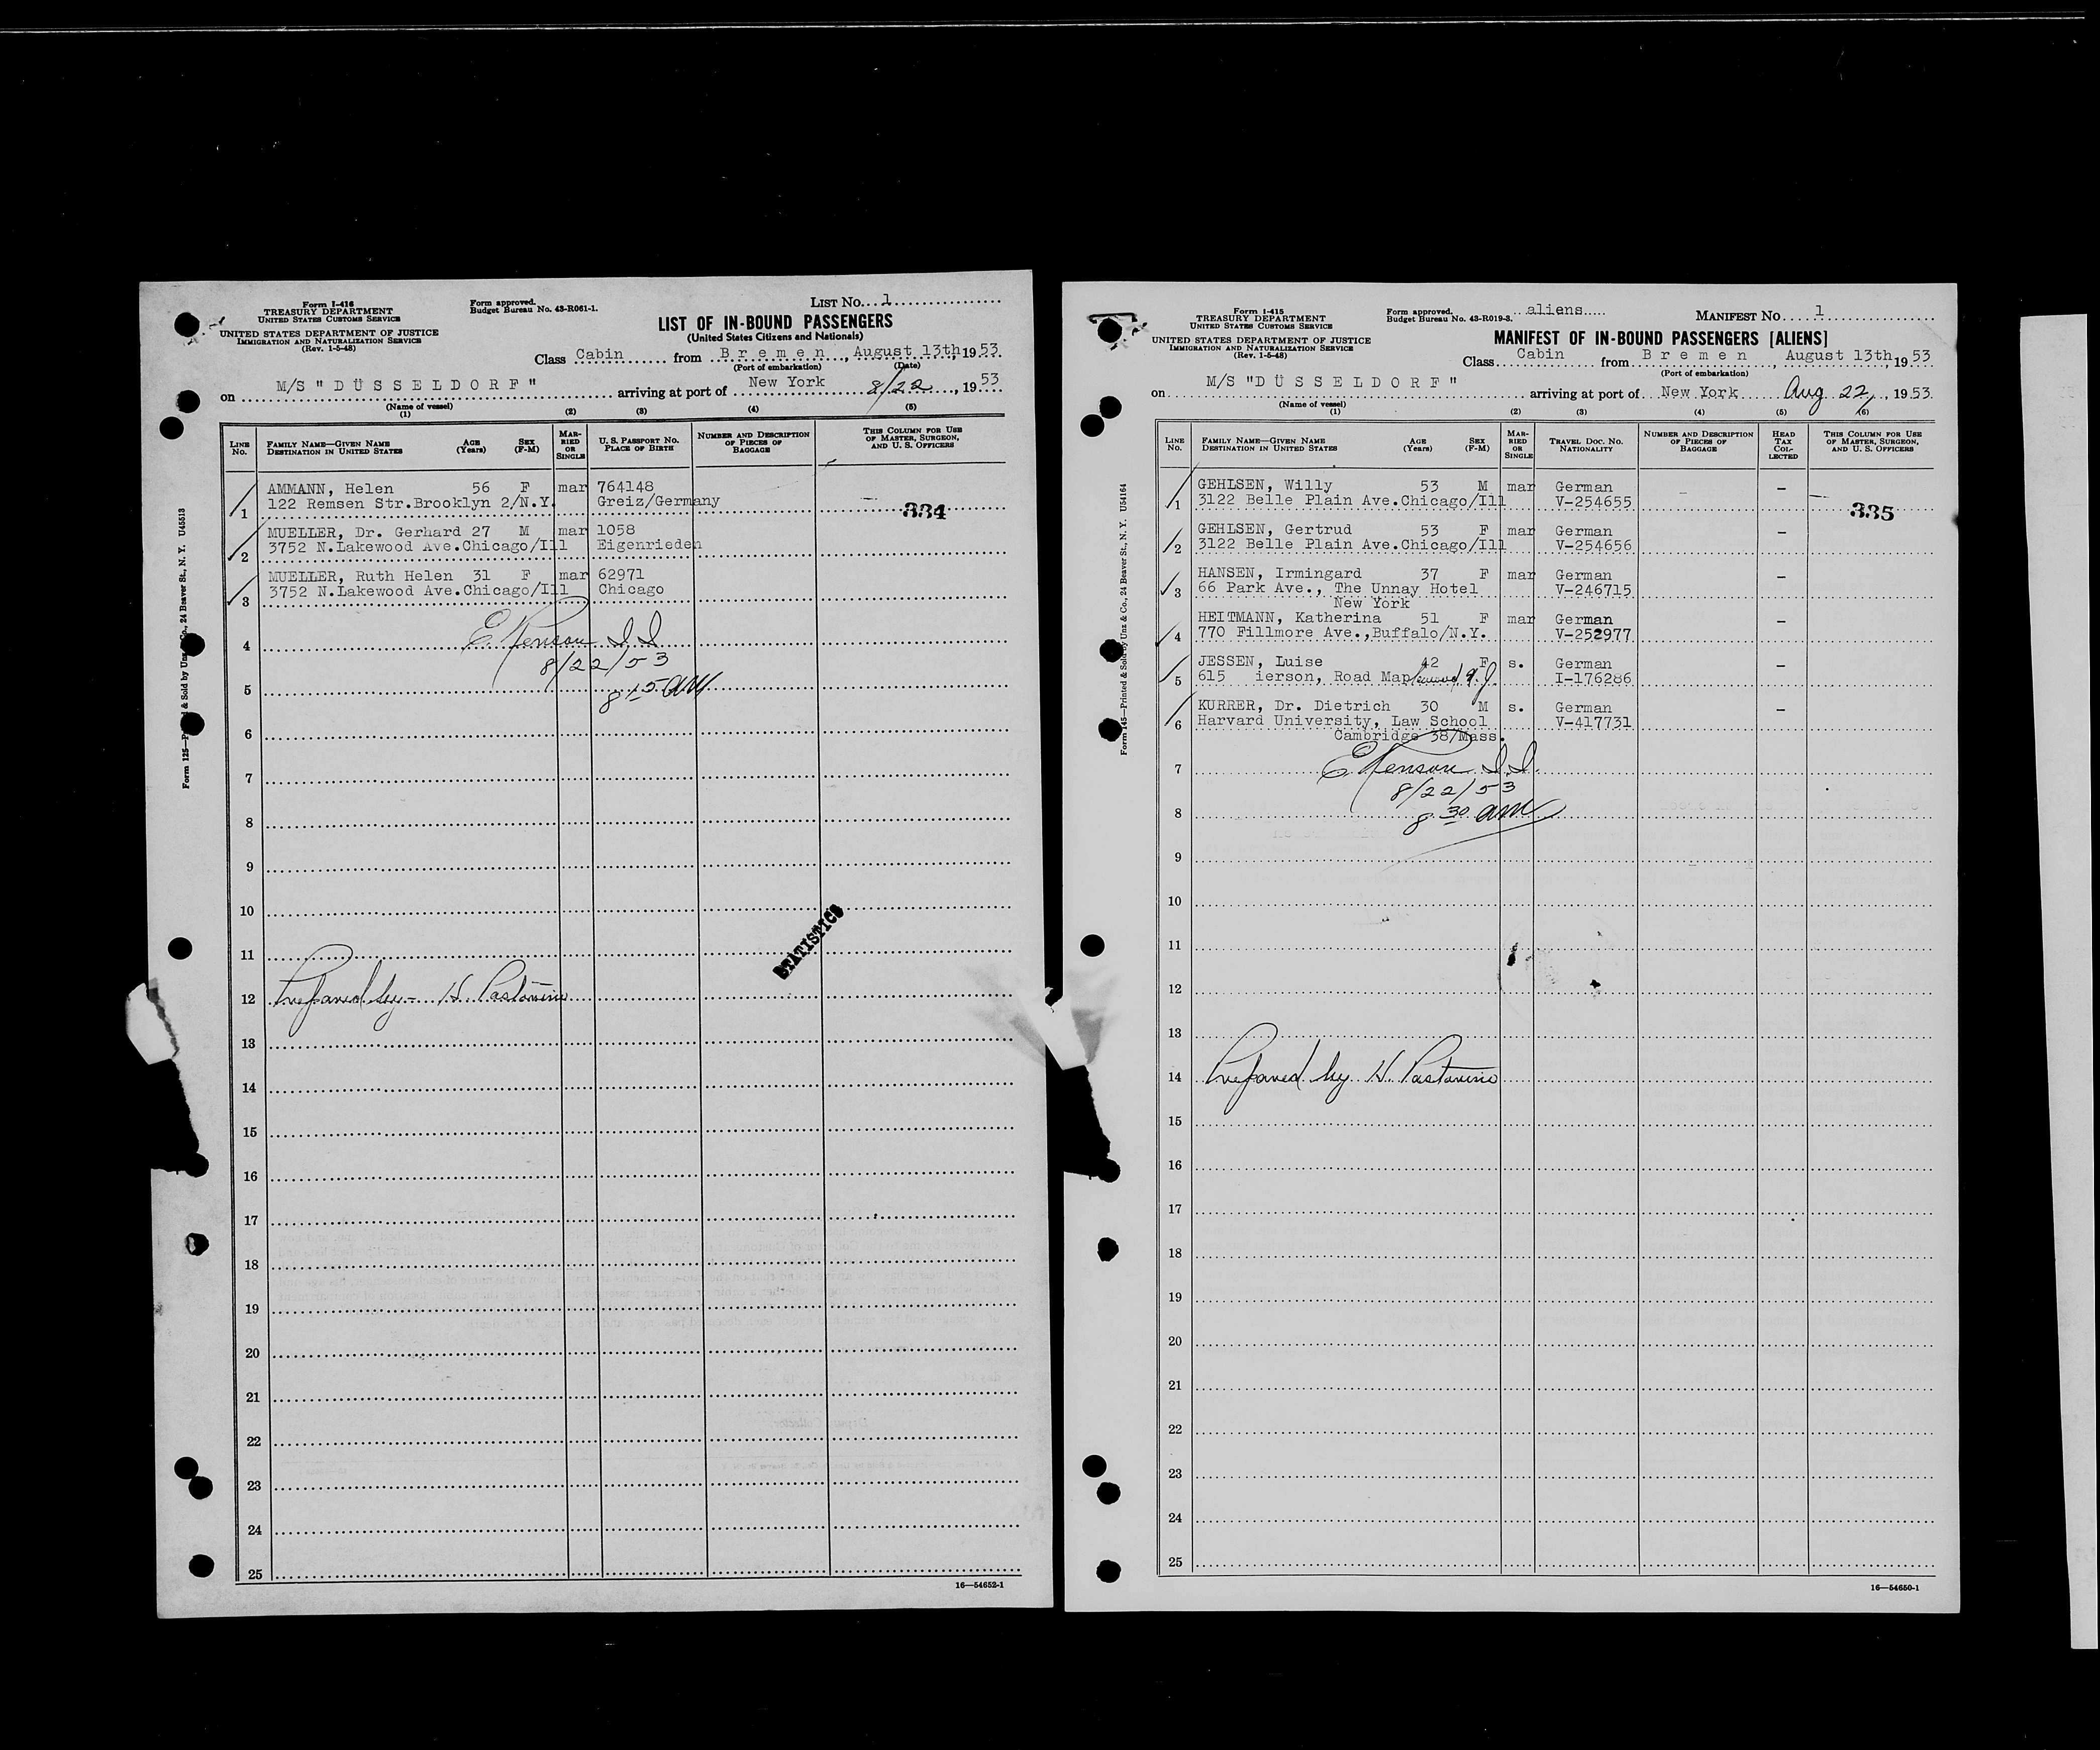 Form I-416
TREASURY DEPARTMENT
UNITED STATES CUSTOMS SERVICE
UNITED STATES DEPARTMENT OF JUSTICE
IMMIGRATION AND NATURALIZATION SERVICE
(Rev. 1-5-48)
Form approved.
Budget Bureau No. 43-R061-1.
LIST NO. 1
LIST OF IN-BOUND PASSENGERS
(United States Citizens and Nationals)
Class Cabin from Bremen, August 13th 1953
(Port of embarkation) (Date)
on M/S "DÜSSELDORF" arriving at port of New York 8/22, 1953
(Name of vessel)
(1) (2) (3) (4) (5)
LINE No. FAMILY NAME—GIVEN NAME DESTINATION IN UNITED STATES AGE (Years) SEX (F-M) MARRIED OR SINGLE U. S. PASSPORT NO. PLACE OF BIRTH NUMBER AND DESCRIPTION OF PIECES OF BAGGAGE THIS COLUMN FOR USE OF MASTER, SURGEON, AND U. S. OFFICERS
AMMANN, Helen 56 F mar 764148
1 122 Remsen Str.Brooklyn 2/N.Y. Greiz/Germany 334
MUELLER, Dr. Gerhard 27 M mar 1058
2 3752 N.Lakewood Ave.Chicago/Ill Eigenrieden
MUELLER, Ruth Helen 31 F mar 62971
3 3752 N.Lakewood Ave.Chicago/Ill Chicago
4 E Kenson I.I.
8/22/53
5 8 15 AM
6
7
8
9
10
STATISTICS
11
12 Prepared by - H. Pastorino
13
14
15
16
17
18
19
20
21
22
23
24
25
16—54652-1
Form 125—Printed & Sold by Unz & Co., 24 Beaver St., N. Y. U45513
Form I-415
TREASURY DEPARTMENT
UNITED STATES CUSTOMS SERVICE
UNITED STATES DEPARTMENT OF JUSTICE
IMMIGRATION AND NATURALIZATION SERVICE
(Rev. 1-5-48)
Form approved.
Budget Bureau No. 43-R019-3.
aliens
MANIFEST NO. 1
MANIFEST OF IN-BOUND PASSENGERS [ALIENS]
Class Cabin from Bremen, August 13th, 1953
(Port of embarkation)
on M/S "DÜSSELDORF" arriving at port of New York Aug 22, 1953
(Name of vessel)
(1) (2) (3) (4) (5) (6)
LINE No. FAMILY NAME—GIVEN NAME DESTINATION IN UNITED STATES AGE (Years) SEX (F-M) MARRIED OR SINGLE TRAVEL DOC. NO. NATIONALITY NUMBER AND DESCRIPTION OF PIECES OF BAGGAGE HEAD TAX COLLECTED THIS COLUMN FOR USE OF MASTER, SURGEON, AND U. S. OFFICERS
GEHLSEN, Willy 53 M mar German –
1 3122 Belle Plain Ave.Chicago/Ill V-254655 335
GEHLSEN, Gertrud 53 F mar German –
2 3122 Belle Plain Ave.Chicago/Ill V-254656
HANSEN, Irmingard 37 F mar German –
3 66 Park Ave., The Unnay Hotel V-246715
New York
HEITMANN, Katherina 51 F mar German –
4 770 Fillmore Ave.,Buffalo/N.Y. V-252977
JESSEN, Luise 42 F s. German –
5 615 ierson, Road Maplewood N.J. I-176286
KURRER, Dr. Dietrich 30 M s. German –
6 Harvard University, Law School V-417731
Cambridge 38/Mass.
7 E Kenson I.I.
8/22/53
8 8 30 AM
9
10
11
12
13
14 Prepared by H. Pastorino
15
16
17
18
19
20
21
22
23
24
25
16—54650-1
Form 145—Printed & Sold by Unz & Co., 24 Beaver St., N. Y. U54164